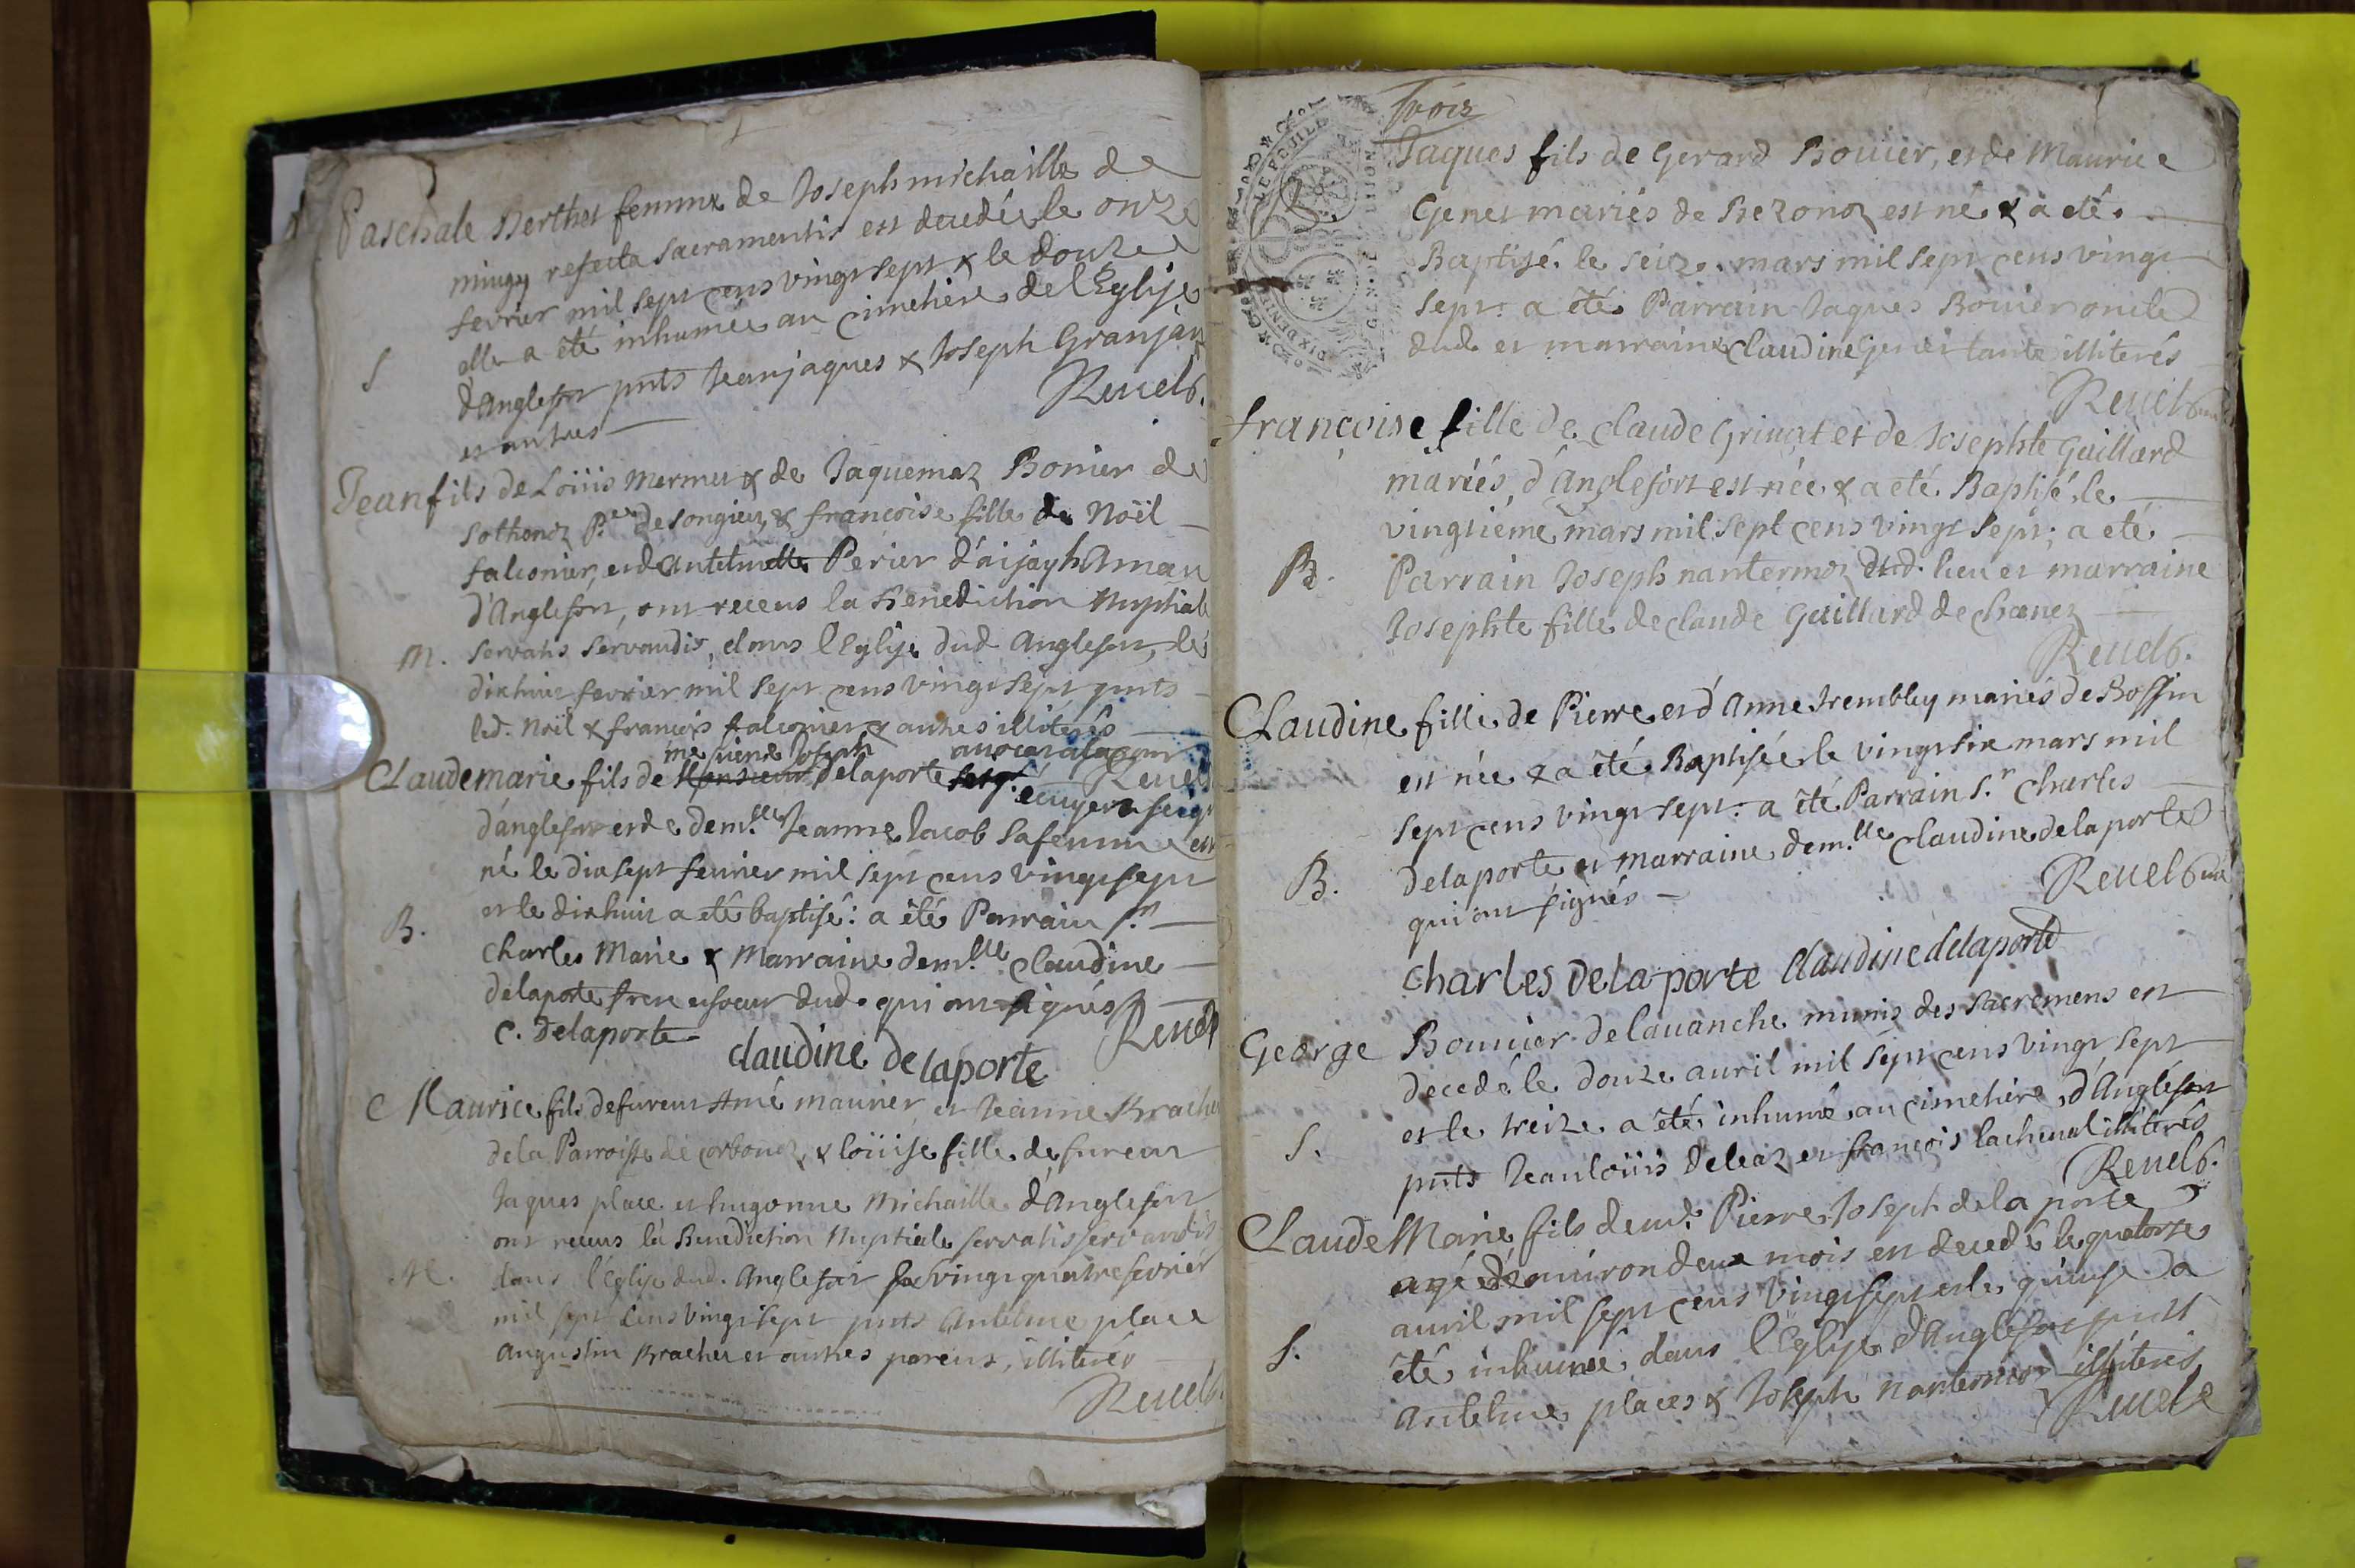 Paschale Berthet femme de Joseph michaille de
mingy refecta sacramentis est decedée le onze
fevrier mil sept cens vingt sept & le douze
elle a été inhumée au cimetiere de l'Eglise
S
d'Anglefort pnts Jeanjaques & Joseph Granjan
et autres
Revel6.
Jean fils de Loüis Mermet & de Jaquemaz Bonier de
Sothonoz P.se de Songieu, & francoise fille de Noël
falconier, et d'Antelmette Perier d'
d'Anglefort, ont receus la Benediction Nuptiale
M.
servatis servandis, dans l'Eglise dud Anglefort, le
dixhuit fevrier mil sept cens vingt sept pnts
led. Noël & francois falconier & autres illiterés
me pierre Joseph avocat a la cour
Revel6
Claude marie fils de Monsieur delaporte seig.r ecuyer & seigr
d'anglefort et de dem.lle Jeanne Jacob sa femme est
né le dix sept fevrier mil sept cens vingt sept
et le dixhuit a été baptisé: a été Parrain Sr.
B.
Charles Marie & Marraine dem.lle Claudine
delaporte frere et soeur dud. qui ont signés
Revel6
C. Delaporte
claudine De laporte
Maurice fils de fureur Amé maurier et Jeanne Brachet
de la Parroisse de Corbonoz, & loüise fille de fureur
Jaques place et hugonne Michaille d'Anglefort
ont receus la Benediction Nuptiale servatis servandis
M.
dans l'Eglise dud. Anglefort le vingt quatre fevrier
mil sept cens vingt sept pnts Antelme place
Augustin Brachet et autres parens, illiterés
Revel6.
Trois
Jaques fils de Gerard Bovier, et de Maurice
Genet mariés de Bezonoz est né & a eté
Baptisé le seize mars mil sept cens vingt
sept: a été Parrain Jaques Bovier oncle
dud. et marraine Claudine Genet tante illiterés
Revel6
francoise fille de Claude Grivat et de Josephte Gaillard
mariés, d'anglefort est née & a eté Baptisé le
vingtiéme mars mil sept cens vingt sept; a eté
B.
Parrain Joseph nantermoz dud. lieu et marraine
Josephte fille de Claude Gaillard de Chanez
Revel6.
Claudine fille de Pierre et d'Anne trembley mariés de Boffin
est née & a été Baptisée le vingt six mars mil
sept cens vingt sept: a été Parrain S.r Charles
B.
Delaporte et marraine dem.lle Claudine delaporte
qui ont signés
Revel6
charles De la porte claudine delaporte
George Bouvier de lavanche munis des sacremens est
decedé le douze avril mil sept cens vingt sept
et le treize a été inhumé au cimetiere d'Anglefort
S.
pnts Jeanloüis deleaz et francois lacheval illiterés
Revel6.
Claude Marie fils de md. Pierre Joseph de la porte
agé d'environ deux mois est decedé le quatorze
avril mil sept cens vingt sept et le quinse a
S.
été inhumé dans l'Eglise d'Anglefort pnts
Antelme places & Joseph nantermoz illiterés
Revel6